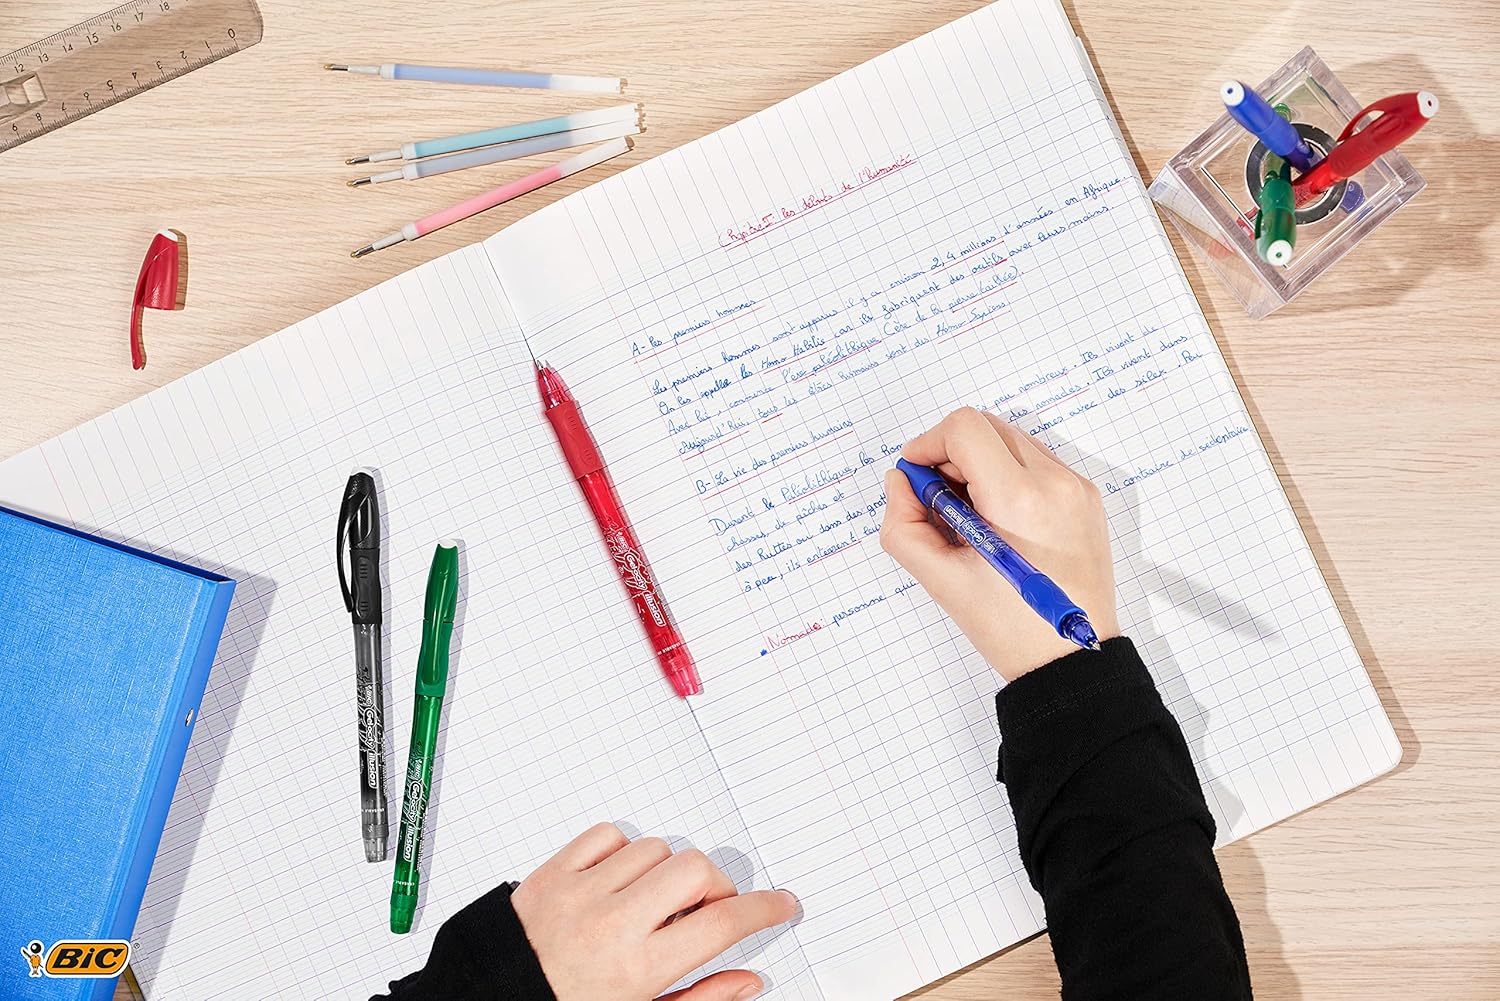 Chapitre I: les débuts de l'humanité
A- Les premiers hommes
Les premiers hommes sont apparus il y a environ 2,4 millions d'années en Afrique.
On les appelle les Homo Habilis car ils fabriquent des outils avec leurs mains.
Avec lui, commence l'ere paléolithique (ère de la pierre taillée).
Aujourd'hui, tous les êtres humains sont des Homo Sapiens.
B- La vie des premiers humains
Durant le Paléolithique, les hom peu nombreux. Ils vivent de
chasses, de pêches et des nomades. Ils vivent dans
des huttes ou dans des grot armes avec des silex. Peu
à peu, ils enterrent leurs
Nomade: personne qui le contraire de sédentaire.
BIC Gelocity illusion
BIC Gelocity illusion
BIC Gelocity illusion
BIC Gelocity illusion
0 1 2 3 4 5 6 7 8 9
12 13 14 15 16 17 18
BiC